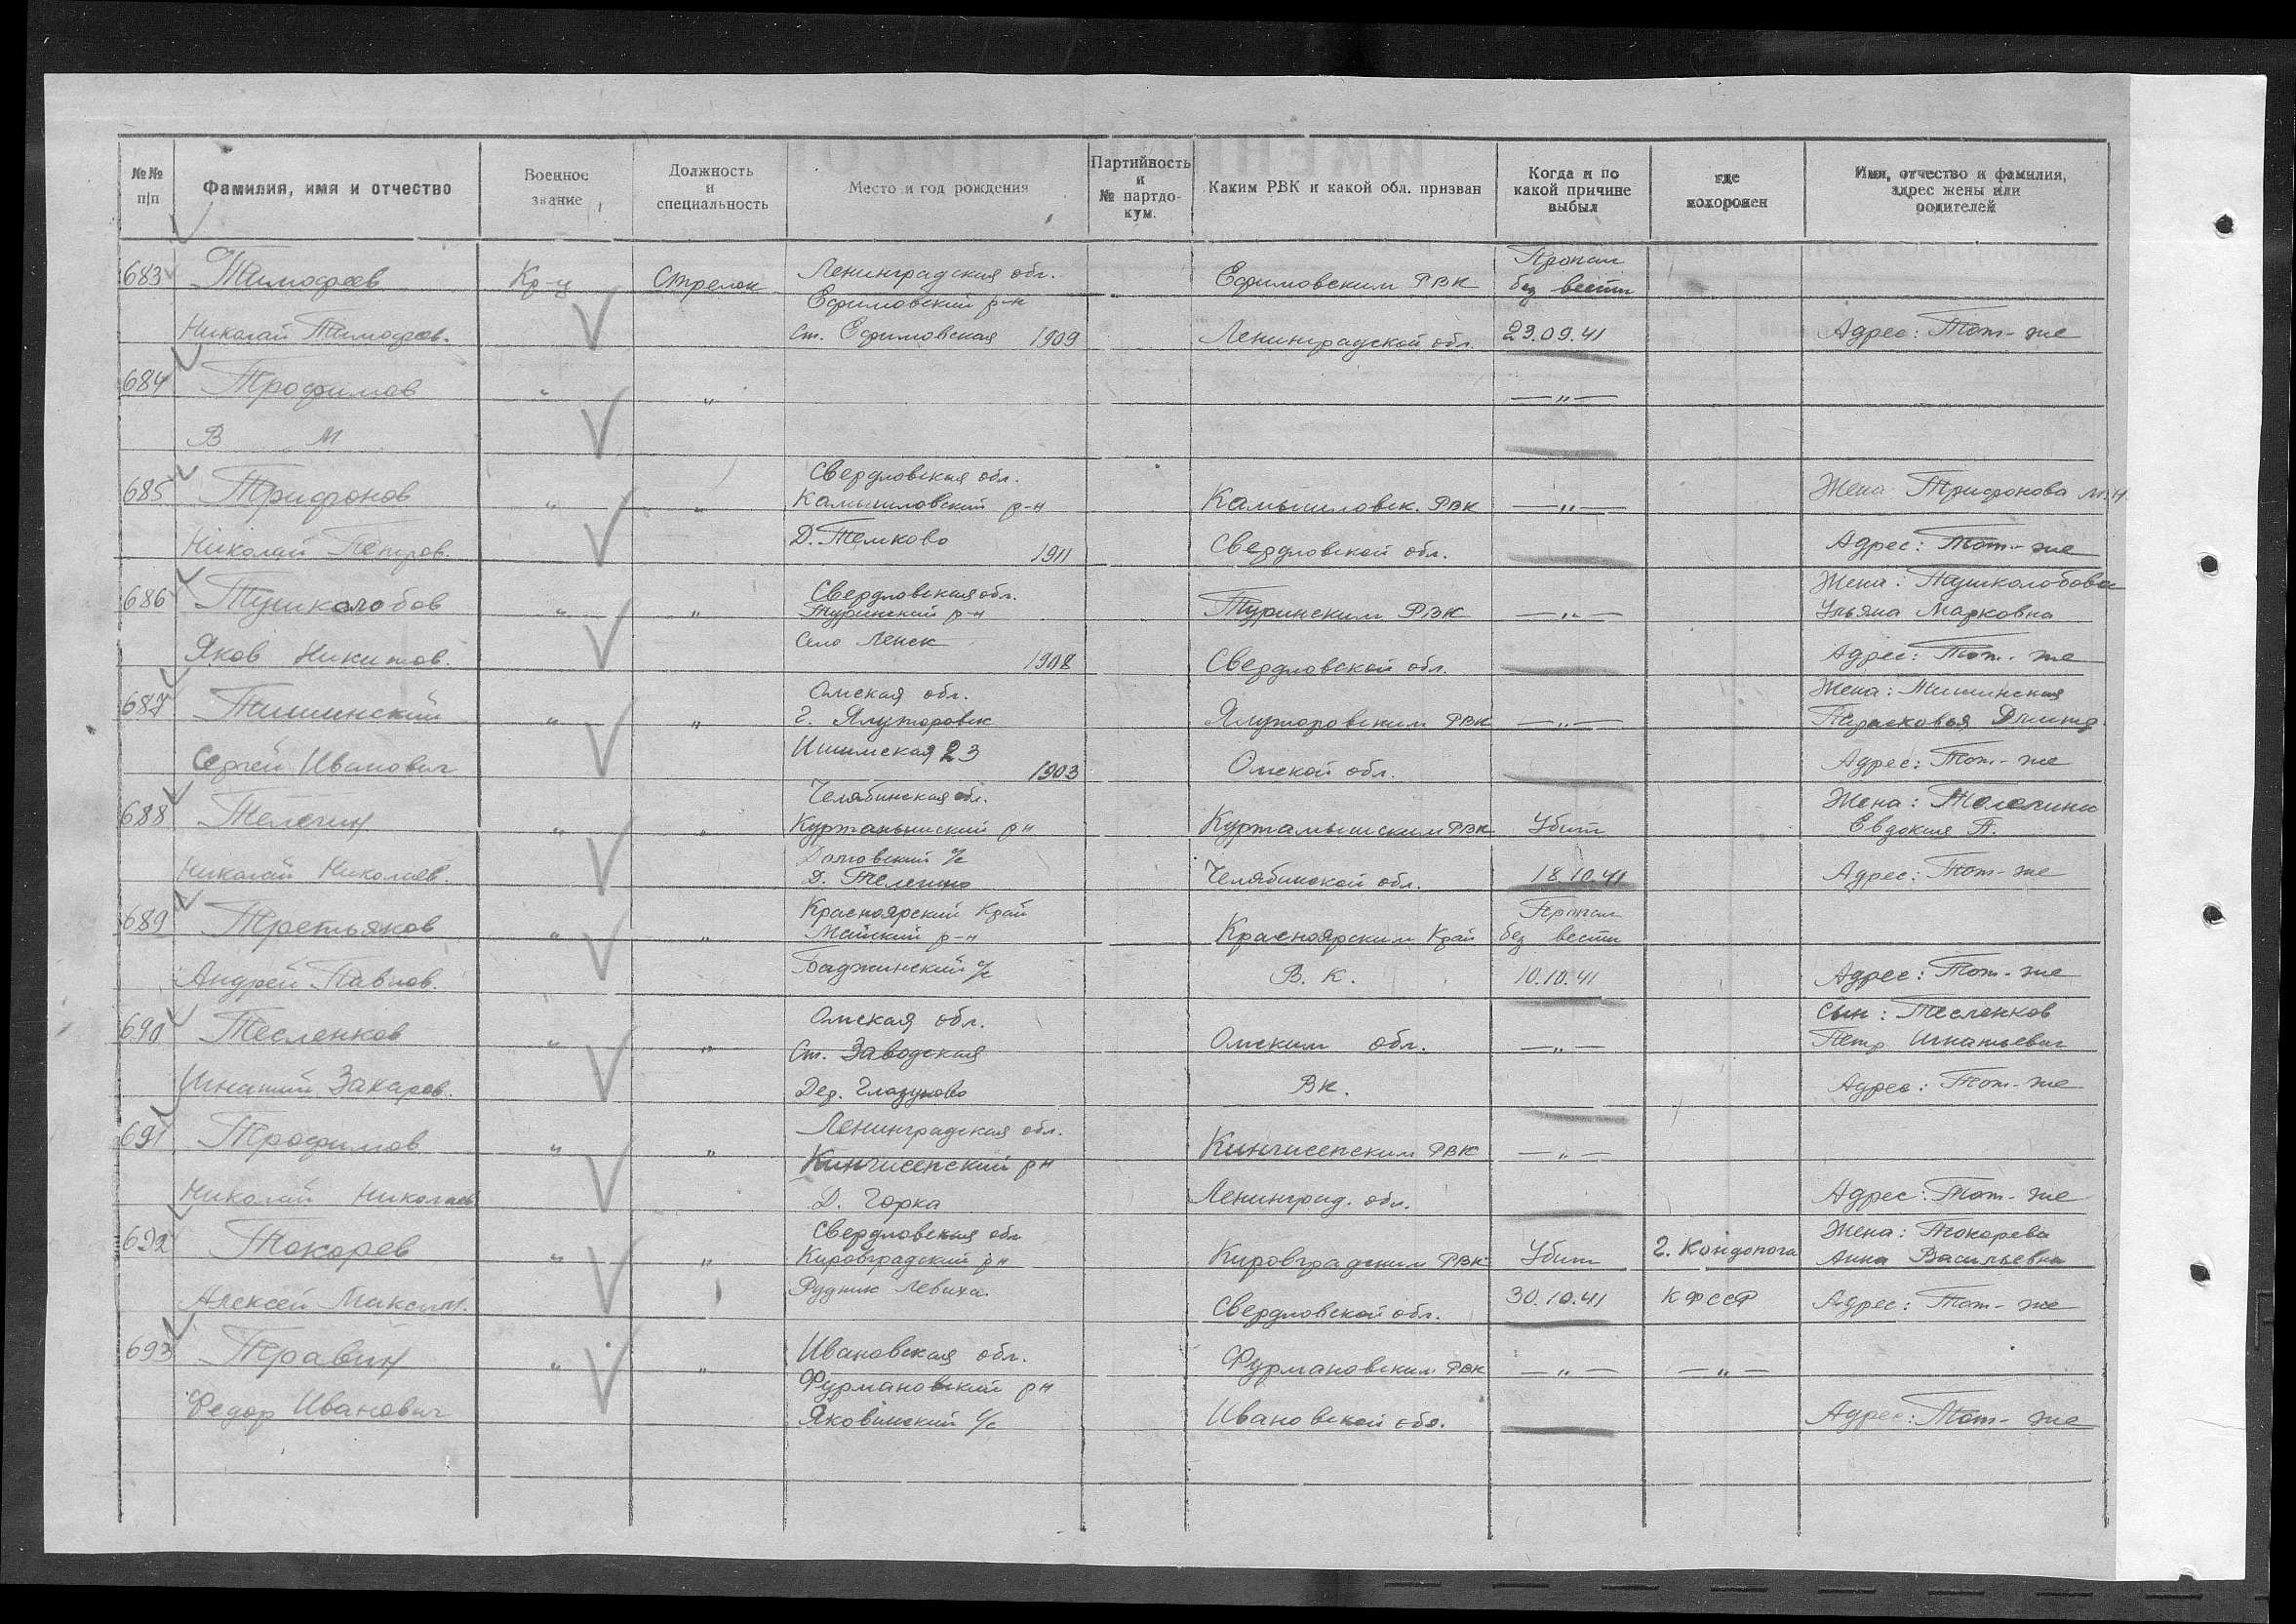 №№ п/п | Фамилия, имя и отчество | Военное звание | Должность и специальность | Место и год рождения | Партийность и № партдокум. | Каким РВК и какой обл. призван | Когда и по какой причине выбыл | где похоронен | Имя, отчество и фамилия, адрес жены или родителей
683 Тимофеев Кр-ц Стрелок Ленинградская обл. Ефимовским РВК Пропал без вести
Ефимовский р-н
Николай Тимофеев. ст. Ефимовская 1909 Ленинградской обл. 23.09.41 Адрес: Тот-же
684 Трофимов " " —"—
В М
685 Трифонов " " Свердловская обл. Камышловский р-н Камышловск. РВК —"— Жена Трифонова М.Н.
Николай Петров. Д. Темково 1911 Свердловской обл. Адрес: Тот-же
686 Тушколобов " " Свердловская обл. Туринский р-н Туринским РВК —"— Жена: Тушколобова Ульяна Марковна
Яков Никитов. Село Ленск 1908 Свердловской обл. Адрес: Тот-же
687 Тишинский " " Омская обл. г. Ялуторовск Ялуторовским РВК —"— Жена: Тишинская Парасковья Дмитр.
Сергей Иванович Ишимская 23 1903 Омской обл. Адрес: Тот-же
688 Телегин " " Челябинская обл. Куртамышский рн Куртамышским РВК Убит Жена: Телегина Евдокия П.
Николай Николаев. Долговский с/с Д. Телегино Челябинской обл. 18.10.41 Адрес: Тот-же
689 Третьяков " " Красноярский Край р-н Красноярским Край Пропал без вести
Андрей Павлов. Баджинский с/с В.К. 10.10.41 Адрес: Тот-же
690 Тесленков " " Омская обл. Ст. Заводская Омским обл. —"— Сын: Тесленков Петр Игнатьевич
Игнатий Захаров. Дер. Глазуново ВК. Адрес: Тот-же
691 Трофимов " " Ленинградская обл. Кингисепский рн Кингисепским РВК —"—
Николай Николаев Д. Горка Ленинград. обл. Адрес: Тот-же
692 Токарев " " Свердловская обл Кировградский рн Кировградским РВК Убит г. Кондопога Жена: Токарева Анна Васильевна
Алексей Максим. Рудник Левиха. Свердловской обл. 30.10.41 КФССР Адрес: Тот-же
693 Травин " " Ивановская обл. Фурмановским РВК —"— —"—
Фурмановский рн
Федор Иванович Яковлевский с/с Ивановской обл. Адрес: Тот-же